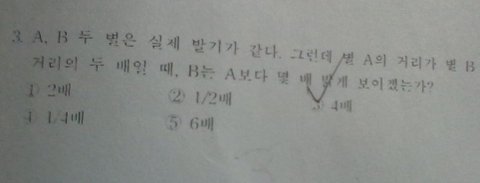 3. A, B 두 별은 실제 밝기가 같다. 그런데 별 A의 거리가 별 B
거리의 두 배일 때, B는 A보다 몇 배 밝게 보이겠는가?
① 2배 ② 1/2배 ③ 4배
④ 1/4배 ⑤ 6배